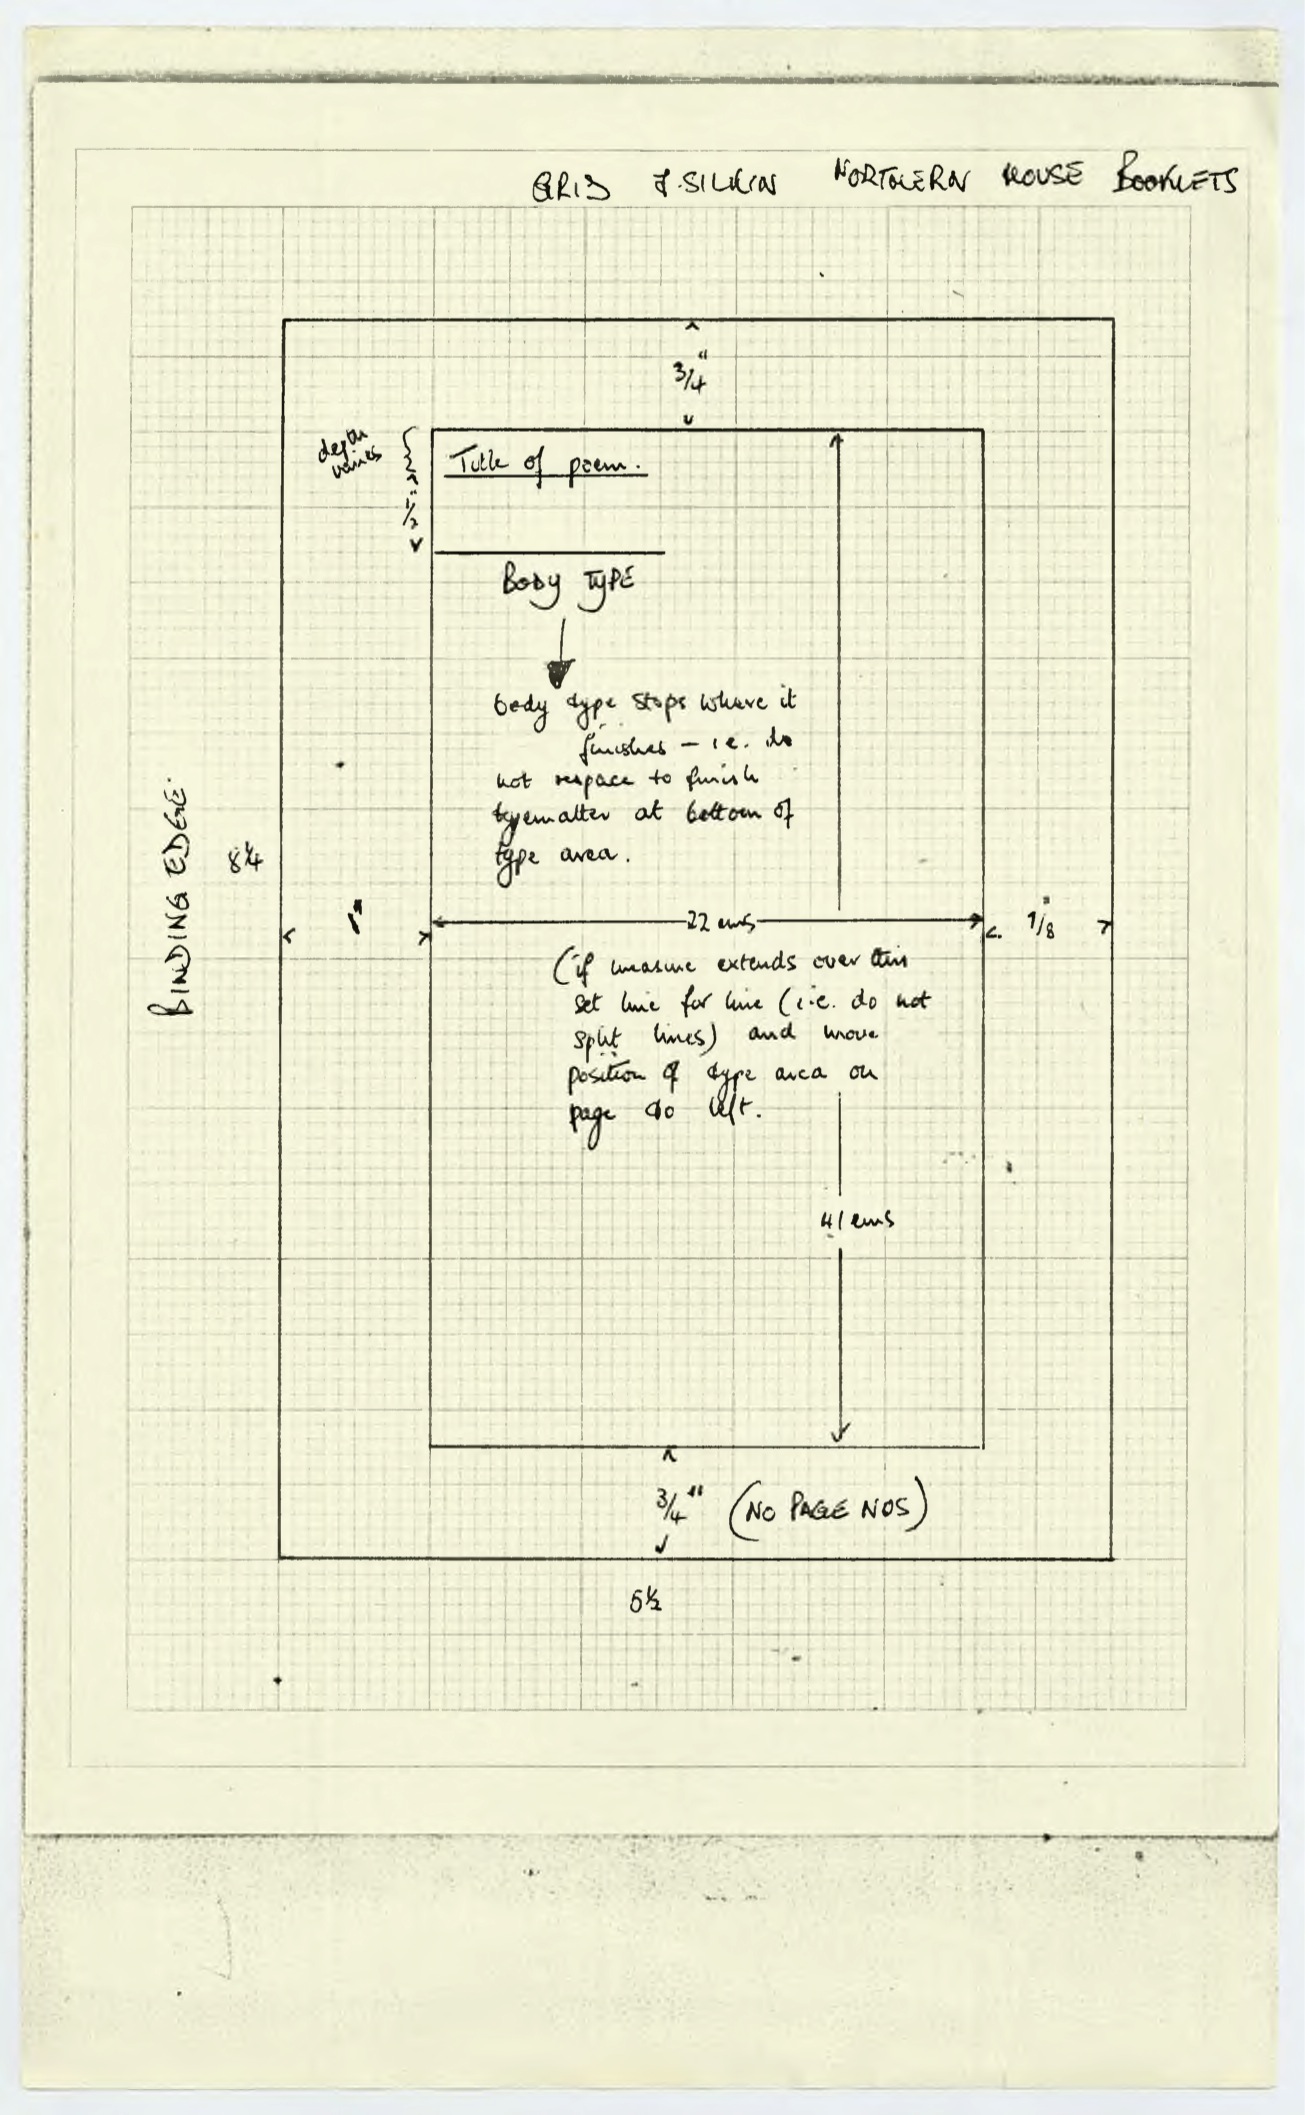 GRID J. SILKIN NORTHERN HOUSE BOOKLETS
3/4"
depth
varies
Title of poem.
1/2"
BODY TYPE
body type stops where it
finishes – i.e. do
not respace to finish
typematter at bottom of
type area.
BINDING EDGE.
8 1/4
1"
22 ems
7/8"
(if measure extends over this
set line for line (i.e. do not
split lines) and move
position of type area on
page to left.
41 ems
3/4" (NO PAGE NOS)
5 1/2